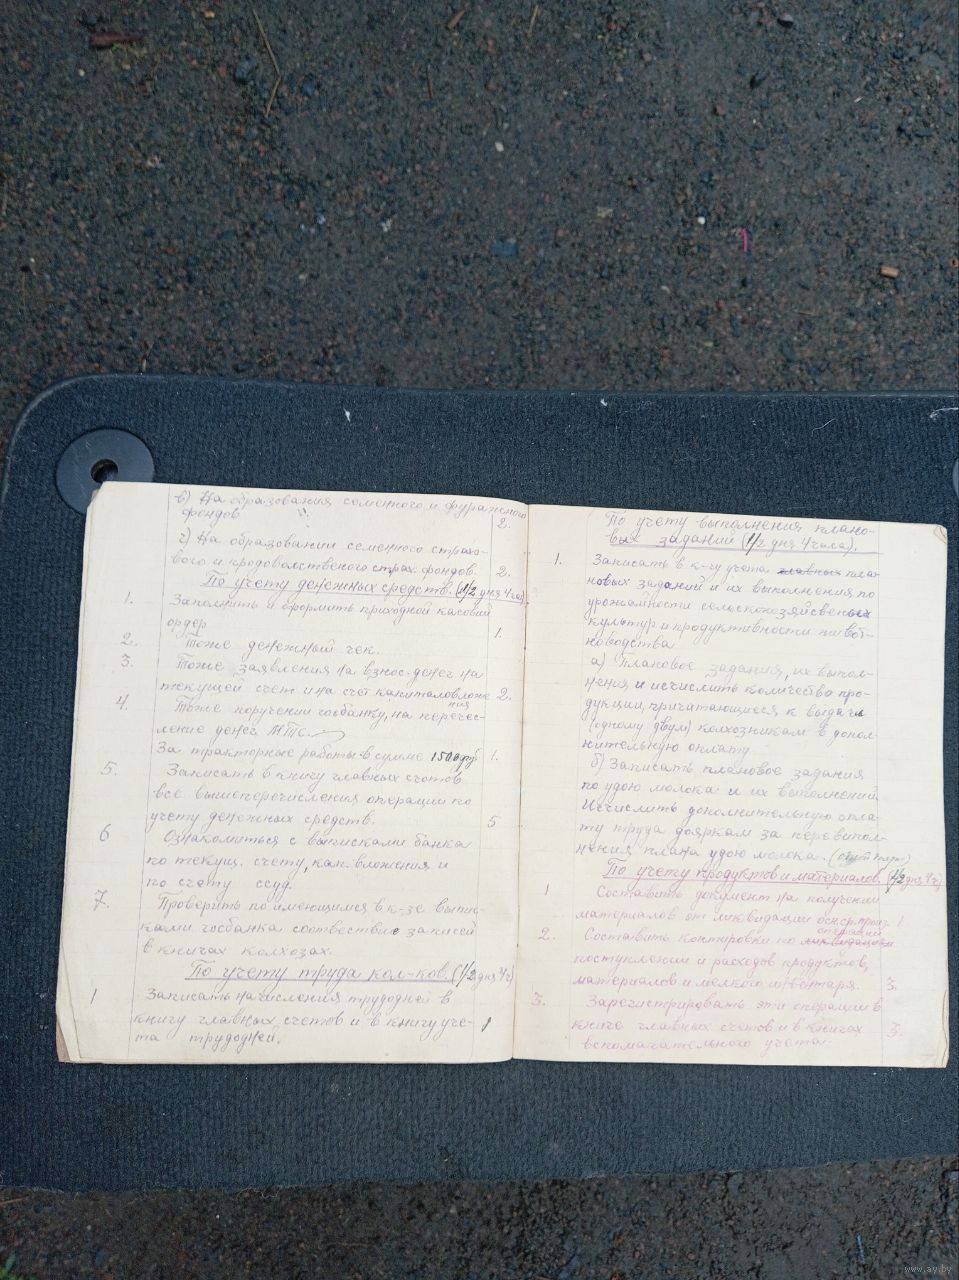 в) На образования семенного и фуражного 2.
фондов.
г) На образовании семенного страхо-
вого и продовольственого страх. фондов. 2.
По учету денежных средств. (1/2 дня 4 час)
1. Заполнить и оформить приходной касовий
ордер 1.
2. Тоже денежный чек.
3. Тоже заявления на взнос. денег на
текущей счет и на счет капиталовложе 2.
ния
4. Тоже поручении госбанку, на перечис-
ление денег МТС
За тракторные работы в сумме 1500 руб 1.
5. Записать в книгу главных счотов
все вышеперечисления операции по
учету денежных средств. 5
6 Ознакомиться с выписками банка
по текущ. счету, кап. вложения и
по счету ссуд.
7. Проверить по имеющимся в к-зе выпис-
ками госбанка соотвествие записей
в книгах колхозах.
По учету труда кол-ков. (1/2 дня 4 ч
1 Записать начисления трудодней в
книгу главных счетов и в книгу уче- 1
та трудодней.
По учету выполнения плано-
вых заданий (1/2 дня 4 часа).
1. Записать в к-гу учета главных пла-
новых заданий и их выполнения по
урожайности сельскохозяйсвеных
культур и продуктивности живот-
новодства
а) Плановое задания, их выпол-
нения и исчислить количества про-
дукции, причитающиеся к выдачи
(одному двум) колхозникам в допол-
нительную оплату
б) Записать плановое задания
по удою молока и их выполнений.
Исчислить дополнительную опла-
ту труда дояркам за перевипол-
нения плана удою молока.
По учету продуктов и материалов. (1/2 дня 4 ч)
1 Составить документ на получении
материалов от ликвидации основ. произ. 1
операций
2. Составить контировки по ликвидации
поступлении и расходов продуктов,
материалов и мелкого инвентаря. 3.
3. Зарегистрировать эти операции в
книге главных счетов и в книгах 3.
вспомагательного учета.
www.ay.by